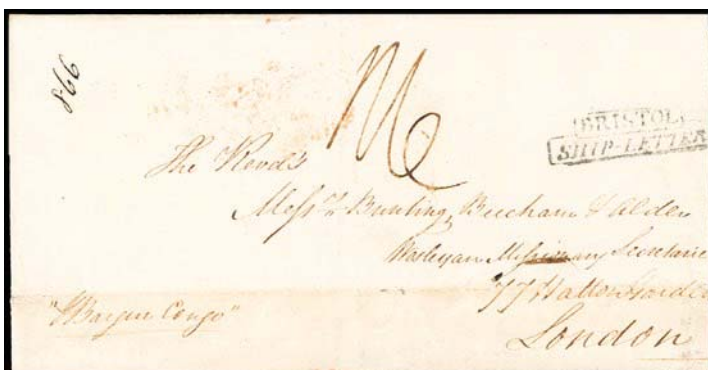 866
BRISTOL
SHIP-LETTER
The Revds
Messrs Bunting, Beecham & Alder
Wesleyan Missionary Secretarie
77 Hatton Garden
"Barque Congo"
London